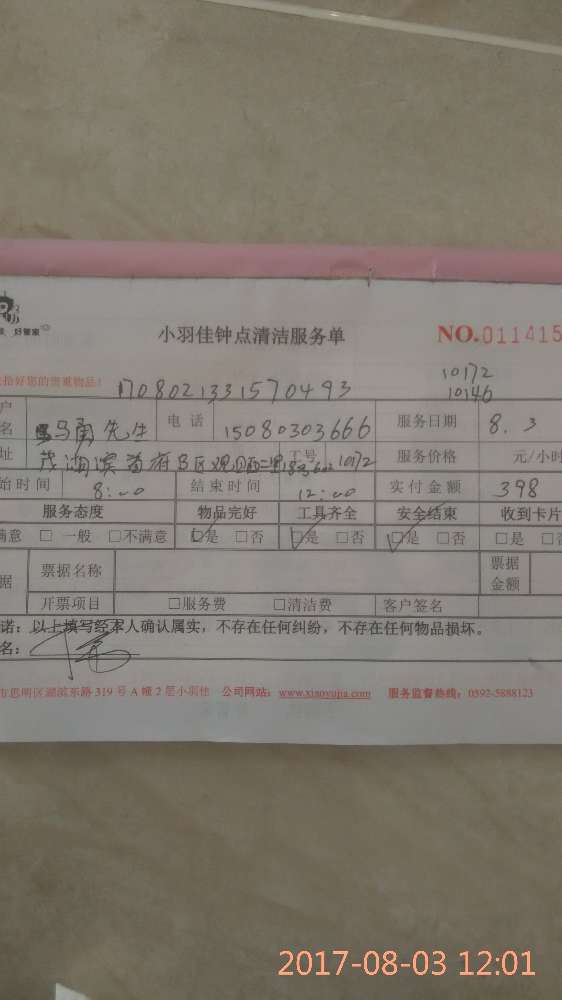 好管家
小羽佳钟点清洁服务单 NO.011415
管好您的贵重物品! 1708021331570493 10172
10146
户 名 马勇先生 电话 15080303666 服务日期 8.3
址 湖滨首府B区观 工号 10172 服务价格 元/小时
始时间 8:00 结束时间 12:00 实付金额 398
服务态度 物品完好 工具齐全 安全结束 收到卡片
满意 □ 一般 □不满意 □是 □否 □是 □否 □是 □否 □是 □否
据 票据名称 票据金额
开票项目 □服务费 □清洁费 客户签名
诺:以上填写经本人确认属实,不存在任何纠纷,不存在任何物品损坏。
名:
市思明区湖滨东路 319 号 A 幢 2 层小羽佳 公司网站:www.xiaoyujia.com 服务监督热线:0592-5888123
2017-08-03 12:01